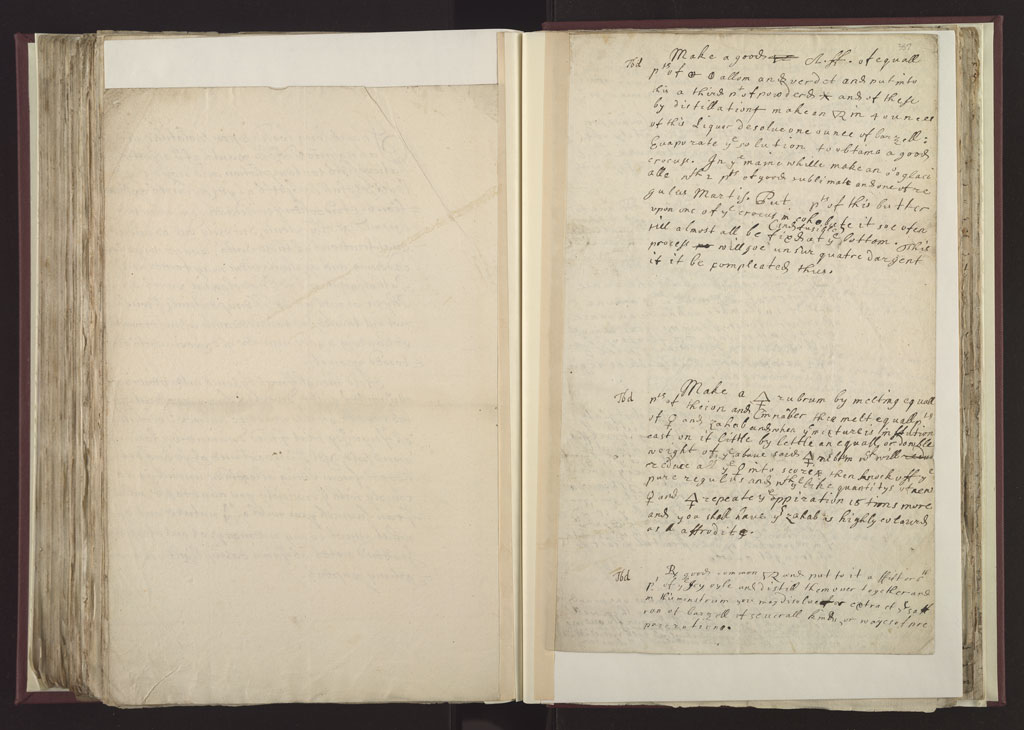 Tbd Make a good of equall
pts of allom and verdet and put into
this a third pt of powdered and of these
by distillation make an in 4 ounces
of this Liquor desolve one ounce of barzell:
Evaporate ye solution to obtaine a good
crocus. In ye maine while make an glaci
alle wth 2 pts of good sublimate and one of re
gulus Martis. Put pts of this butter
upon one of ye crocus cohobate it soe often
till almost all be fixed at ye bottom. This
process will give un sur quatre dargent
if it be compleated thus.
Tbd Make a 🜍 rubrum by melting equall
pts of theion and Cinnaber then melt equall pts
of ♀ and zahab and when ye mixture is in
cast on it little by little an equall or double
weight of ye above said 🜍 rubrum wt will
reduce all ye ♀ into scorex then knock off ye
pure regulus and wth ye like quantitys of new
♀ and 🜍 repeate ye oppiration 15 tions more
and you shall have ye zahab as highly coloured
as affrodite.
Tbd ℞ good common and put to it a
pt of oyle and distill them over together and
in this menstrum you may disolve or extract ye
ron of barzell of severall kinds or wayes of pre
perations.